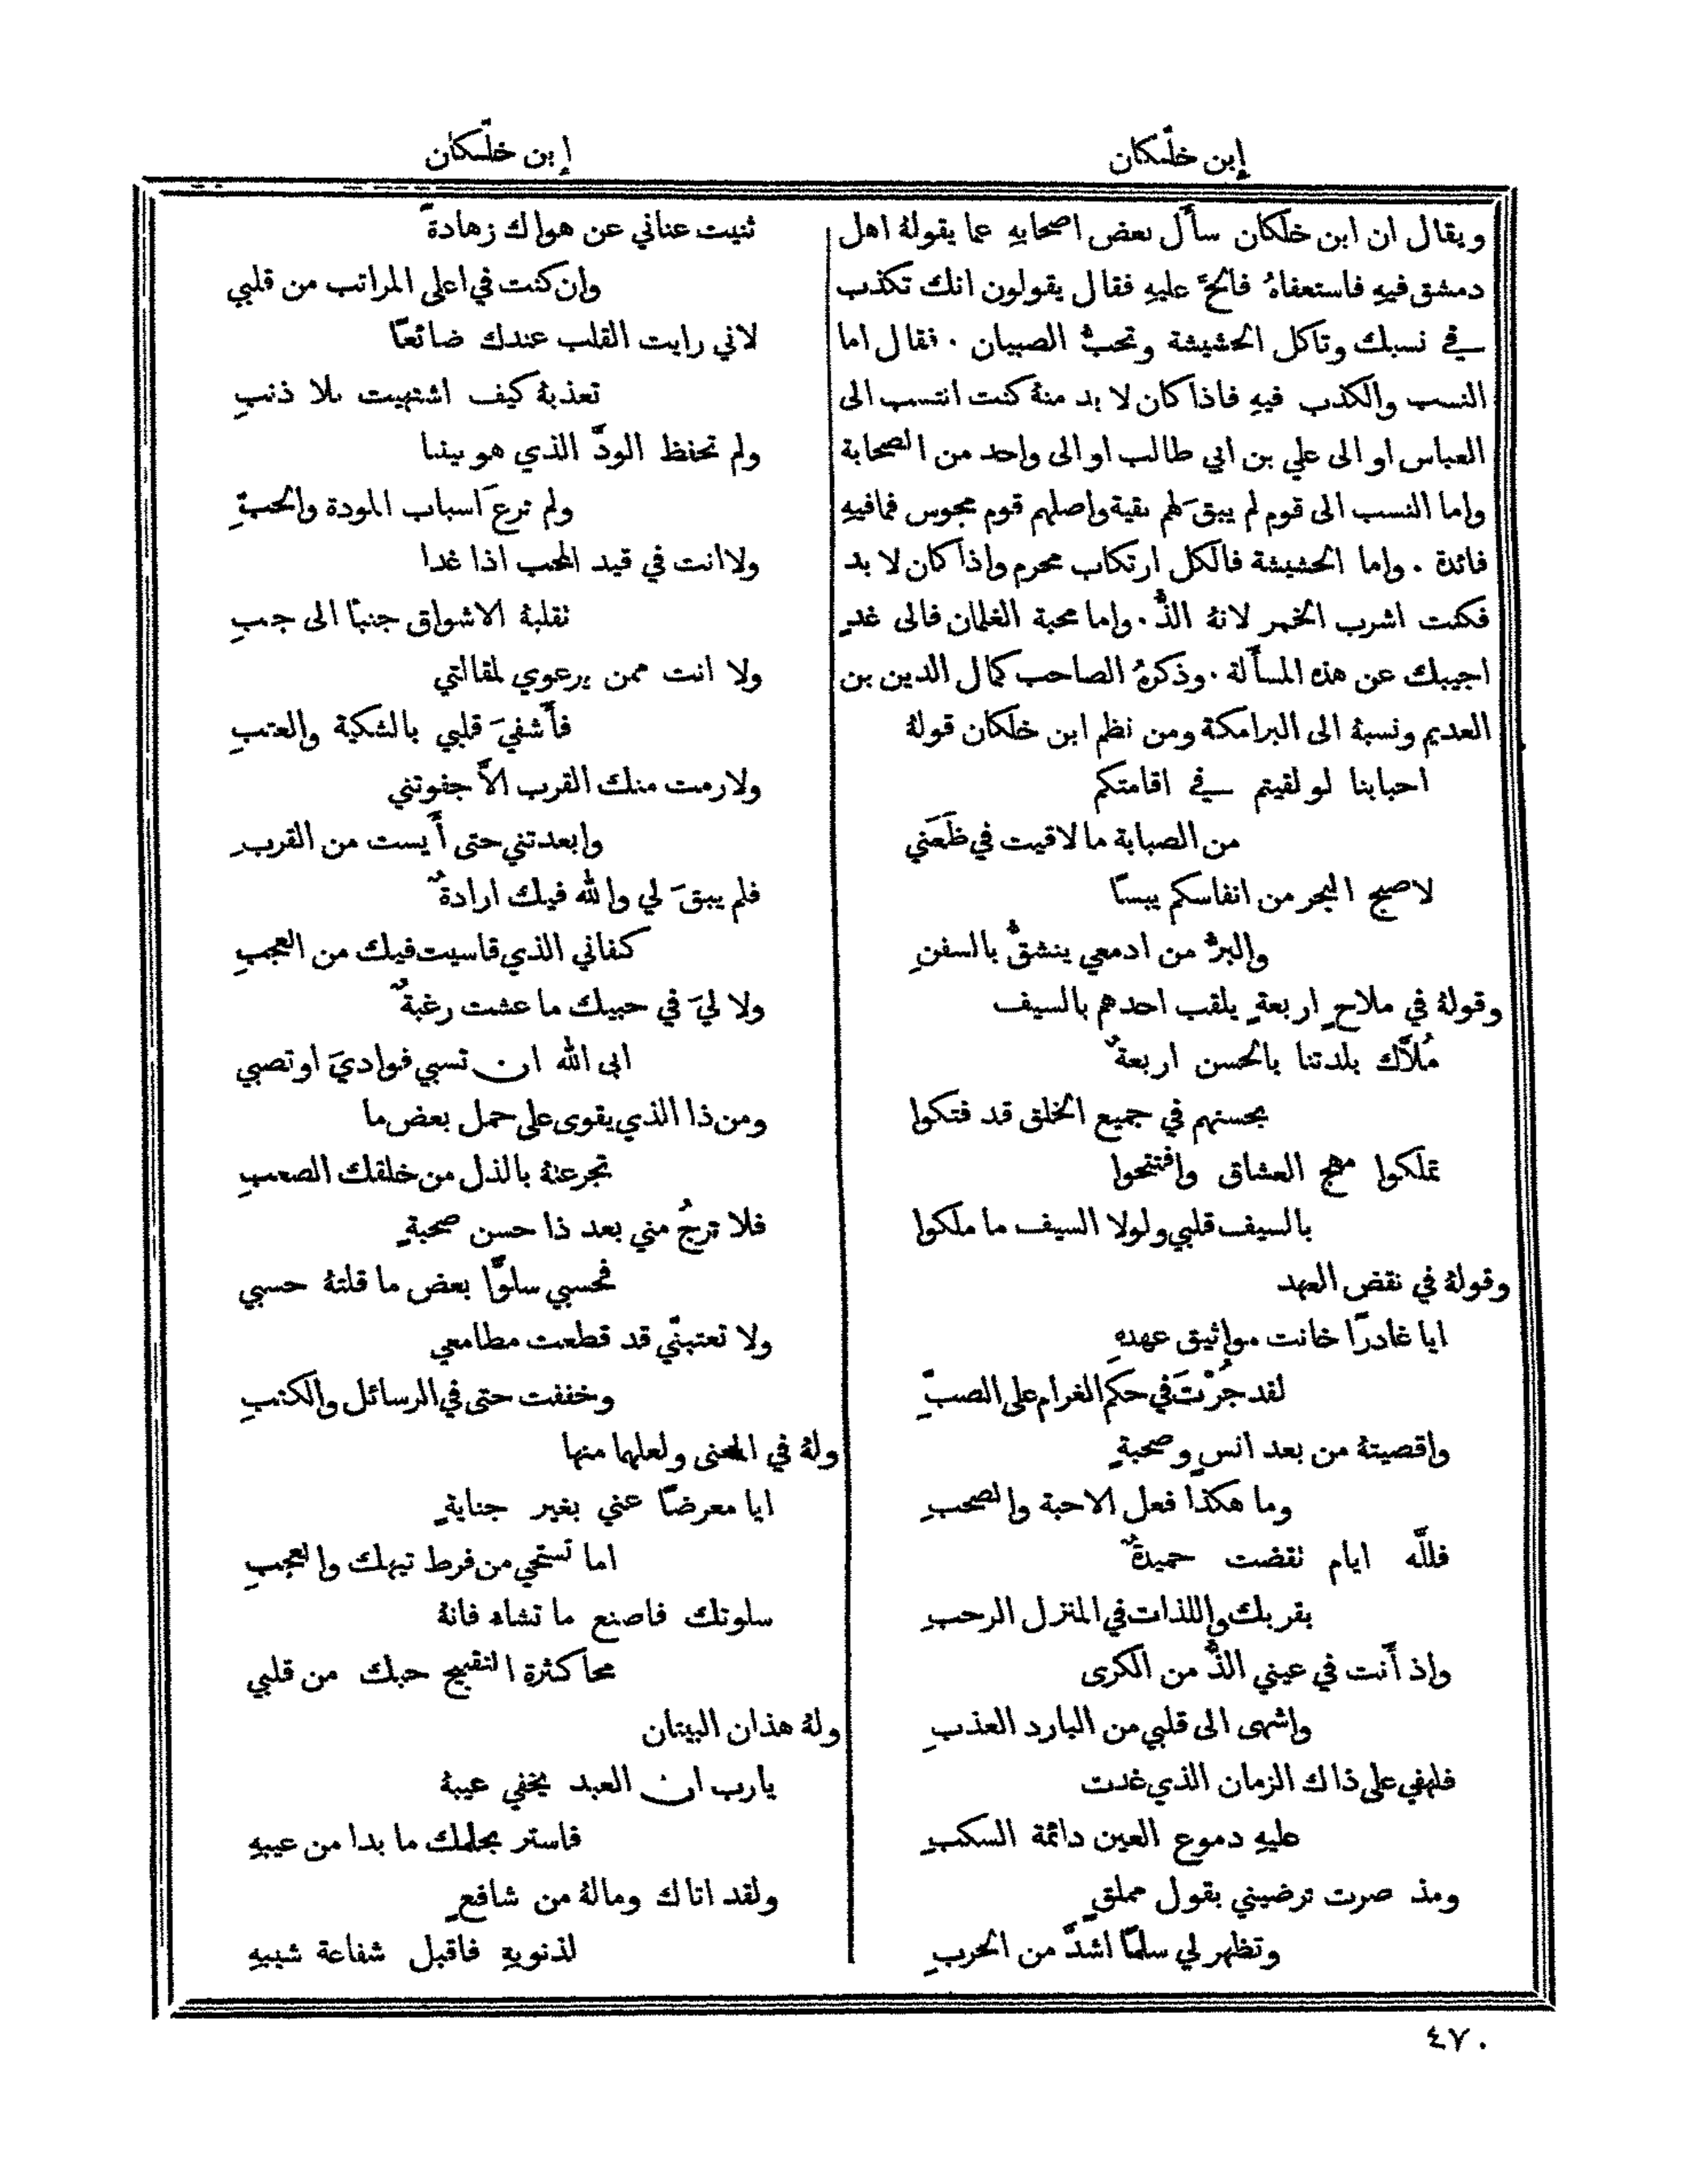 إبن خلّكان
إبن خلّكان
ويقال ان ابن خلّكان سأَل بعض اصحابهِ عما يقولهُ اهل
دمشق فيهِ فاستعفاهُ فالحَّ عليهِ فقال يقولون انك تكذب
في نسبك وتاكل الحشيشة وتحبُّ الصبيان . فقال اما
النسب والكذب فيهِ فاذا كان لا بد منهُ كنت انتسب الى
العباس او الى علي بن ابي طالب او الى واحد من الصحابة
واما النسب الى قوم لم يبقَ لهم بقية واصلهم قوم مجوس فما فيهِ
فائدة . واما الحشيشة فالكل ارتكاب محرم واذا كان لا بد
فكنت اشرب الخمر لانهُ الذُّ . واما محبة الغلمان فالى غدٍ
اجيبك عن هذه المسأَلة . وذكرهُ الصاحب كمال الدين بن
العديم ونسبهُ الى البرامكة ومن نظم ابن خلكان قولهُ
احبابنا لو لقيتم في اقامتكم
من الصبابة ما لاقيت في ظَعَني
لاصبح البحر من انفاسكم يبسًا
والبرُّ من ادمعي ينشقُّ بالسفنِ
وقولهُ في ملاحٍ اربعةٍ يلقب احدهم بالسيف
مُلاَّك بلدتنا بالحسن اربعةٌ
بحسنهم في جميع الخلق قد فتكوا
تملكوا مهج العشاق وافتتحوا
بالسيف قلبي ولولا السيف ما ملكوا
وقولهُ في نقض العهد
ايا غادرًا خانت مواثيق عهدهِ
لقد جُرْتَ في حكم الغرام على الصبِّ
واقصيتهُ من بعد انسٍ وصحبةٍ
وما هكذا فعل الاحبة والصحبِ
فللَّه ايام نقضت حميدةٌ
بقربك واللذات في المنزل الرحبِ
واذ أَنت في عيني الذُّ من الكرى
واشهى الى قلبي من البارد العذبِ
فلهفي على ذاك الزمان الذي غدت
عليهِ دموع العين دائمة السكبِ
ومذ صرت ترضيني بقول مملقٍ
وتظهر لي سلمًا اشدَّ من الحربِ
ثنيت عناني عن هواك زهادةً
وان كنت في اعلى المراتب من قلبي
لاني رايت القلب عندك ضائعًا
تعذبهُ كيف اشتهيت بلا ذنبِ
ولم تحفظ الودَّ الذي هو بيننا
ولم ترعَ اسباب المودة والحبِّ
ولا انت في قيد المحب اذا غدا
تقلبهُ الاشواق جنبًا الى جنبِ
ولا انت ممن يرعوي لمقالتي
فأَشفيَ قلبي بالشكية والعتبِ
ولا رمت منك القرب الاَّ جفوتني
وابعدتني حتى أَيست من القربِ
فلم يبقَ لي والله فيك ارادةٌ
كفاني الذي قاسيت فيك من العجبِ
ولا ليَ في حبيك ما عشت رغبةٌ
ابى الله ان تسبي فواديَ او تصبي
ومن ذا الذي يقوى على حمل بعض ما
تجرعتهُ بالذل من خلقك الصعبِ
فلا ترجُ مني بعد ذا حسن صحبةٍ
فحسبي سلوًّا بعض ما قلتهُ حسبي
ولا تعتبنّي قد قطعت مطامعي
وخففت حتى في الرسائل والكتبِ
ولهُ في المعنى ولعلها منها
ايا معرضًا عني بغير جنايةٍ
اما تستحي من فرط تيهك والعجبِ
سلوتك فاصنع ما تشاء فانهُ
محا كثرة التقبيح حبك من قلبي
ولهُ هذان البيتان
يارب ان العبد يخفي عيبهُ
فاستر بحلمك ما بدا من عيبهِ
ولقد اتاك ومالهُ من شافعٍ
لذنوبهِ فاقبل شفاعة شيبهِ
٤٧٠